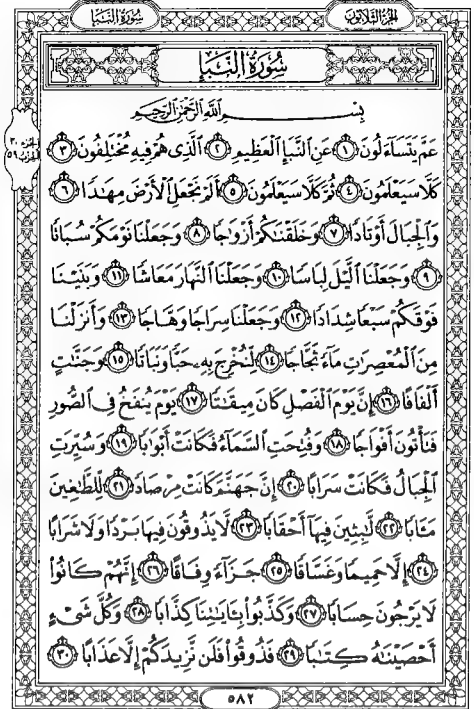 سُورَةُ النَّبَإِ
الجُزْءُ الثَّلَاثُونَ
سُورَةُ النَّبَإِ
بِسْمِ اللَّهِ الرَّحْمَٰنِ الرَّحِيمِ
عَمَّ يَتَسَآءَلُونَ ١ عَنِ ٱلنَّبَإِ ٱلْعَظِيمِ ٢ ٱلَّذِى هُمْ فِيهِ مُخْتَلِفُونَ ٣
كَلَّا سَيَعْلَمُونَ ٤ ثُمَّ كَلَّا سَيَعْلَمُونَ ٥ أَلَمْ نَجْعَلِ ٱلْأَرْضَ مِهَـٰدًا ٦
وَٱلْجِبَالَ أَوْتَادًا ٧ وَخَلَقْنَـٰكُمْ أَزْوَٰجًا ٨ وَجَعَلْنَا نَوْمَكُمْ سُبَاتًا
٩ وَجَعَلْنَا ٱلَّيْلَ لِبَاسًا ١٠ وَجَعَلْنَا ٱلنَّهَارَ مَعَاشًا ١١ وَبَنَيْنَا
فَوْقَكُمْ سَبْعًا شِدَادًا ١٢ وَجَعَلْنَا سِرَاجًا وَهَّاجًا ١٣ وَأَنزَلْنَا
مِنَ ٱلْمُعْصِرَٰتِ مَآءً ثَجَّاجًا ١٤ لِّنُخْرِجَ بِهِۦ حَبًّا وَنَبَاتًا ١٥ وَجَنَّـٰتٍ
أَلْفَافًا ١٦ إِنَّ يَوْمَ ٱلْفَصْلِ كَانَ مِيقَـٰتًا ١٧ يَوْمَ يُنفَخُ فِى ٱلصُّورِ
فَتَأْتُونَ أَفْوَاجًا ١٨ وَفُتِحَتِ ٱلسَّمَآءُ فَكَانَتْ أَبْوَٰبًا ١٩ وَسُيِّرَتِ
ٱلْجِبَالُ فَكَانَتْ سَرَابًا ٢٠ إِنَّ جَهَنَّمَ كَانَتْ مِرْصَادًا ٢١ لِّلطَّـٰغِينَ
مَـَٔابًا ٢٢ لَّـٰبِثِينَ فِيهَآ أَحْقَابًا ٢٣ لَّا يَذُوقُونَ فِيهَا بَرْدًا وَلَا شَرَابًا
٢٤ إِلَّا حَمِيمًا وَغَسَّاقًا ٢٥ جَزَآءً وِفَاقًا ٢٦ إِنَّهُمْ كَانُوا۟
لَا يَرْجُونَ حِسَابًا ٢٧ وَكَذَّبُوا۟ بِـَٔايَـٰتِنَا كِذَّابًا ٢٨ وَكُلَّ شَىْءٍ
أَحْصَيْنَـٰهُ كِتَـٰبًا ٢٩ فَذُوقُوا۟ فَلَن نَّزِيدَكُمْ إِلَّا عَذَابًا ٣٠
٥٨٢